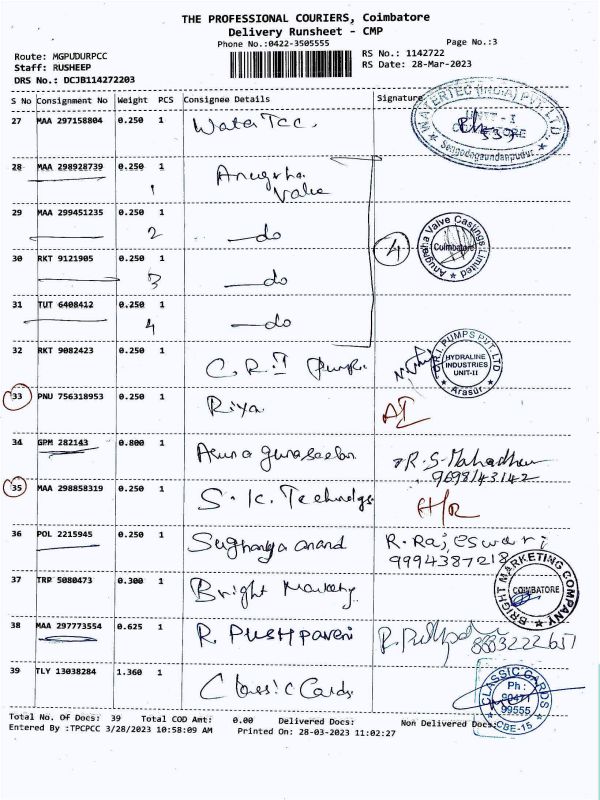 THE PROFESSIONAL COURIERS, Coimbatore
Delivery Runsheet - CMP
Phone No.:0422-3505555
Page No.:3
Route: MGPUDURPCC
Staff: RUSHEEP
DRS No.: DCJB114272203
RS No.: 1142722
RS Date: 28-Mar-2023
S No Consignment No Weight PCS Consignee Details Signature
27 MAA 297158804 0.250 1 Water Tec.
WATERTEC (INDIA) PVT. LTD.
UNIT - I
COIMBATORE
Sengodagaundanpudur
28 MAA 298928739 0.250 1 Anugraha
1 Valve
29 MAA 299451235 0.250 1
2 do
4
Anugraha Valve Castings Limited
Coimbatore
30 RKT 9121905 0.250 1
3 do
31 TUT 6408412 0.250 1
4 do
32 RKT 9082423 0.250 1 C.R.I Pumps
C.R.I. PUMPS PVT. LTD
HYDRALINE
INDUSTRIES
UNIT-II
Arasur.
33 PNU 756318953 0.250 1 Riya
34 GPM 282143 0.800 1 Aruna gunaseelan R.S. Mahadhev
9698143142
35 MAA 298858319 0.250 1 S.K. Technolgs
36 POL 2215945 0.250 1 Sughanya anand R. Rajeswari
9994387218
37 TRP 5080473 0.300 1 Bright Marketing
BRIGHT MARKETING COMPANY
COIMBATORE
38 MAA 297773554 0.625 1 R. Pushpaveni 8883222657
39 TLY 13038284 1.360 1 Classic Cards
CLASSIC CARDS
Ph :
99555
CBE-15
Total No. OF Docs: 39 Total COD Amt: 0.00 Delivered Docs: Non Delivered Docs:
Entered By :TPCPCC 3/28/2023 10:58:09 AM Printed On: 28-03-2023 11:02:27